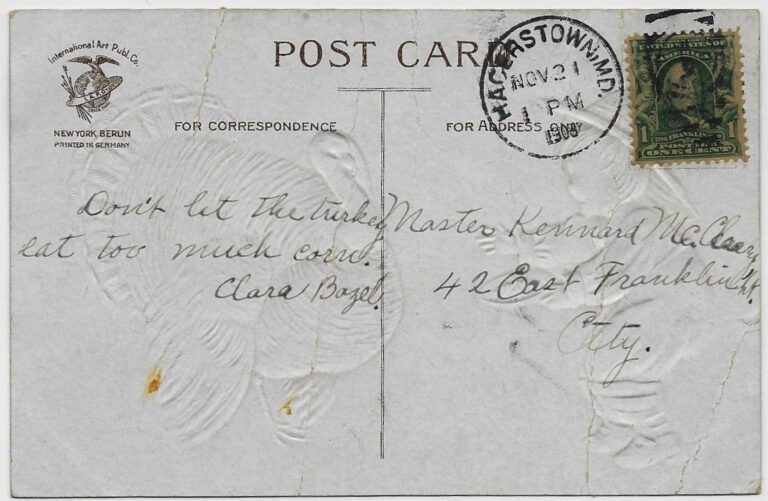 International Art Publ. Co.
NEW YORK BERLIN
PRINTED IN GERMANY
POST CARD
HAGERSTOWN, MD.
NOV 21
1 PM
1908
UNITED STATES OF
AMERICA
FRANKLIN
1 POSTAGE 1
ONE CENT
FOR CORRESPONDENCE
FOR ADDRESS ONLY
Don't let the turkey
eat too much corn.
Clara Bozel
Master Kennard
42 East Franklin St.
City.